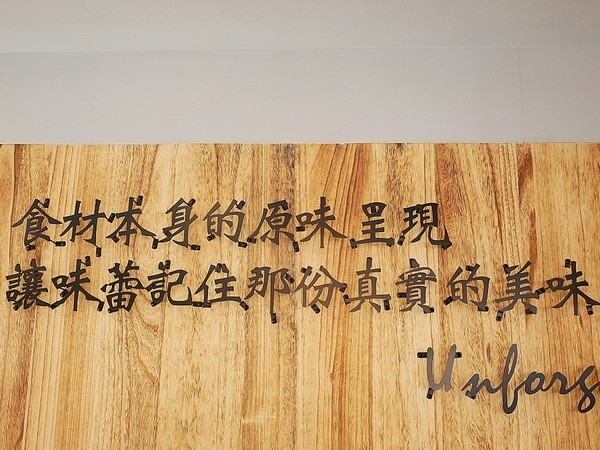 食材本身的原味呈現
讓味蕾記住那份真實的美味
Unforg